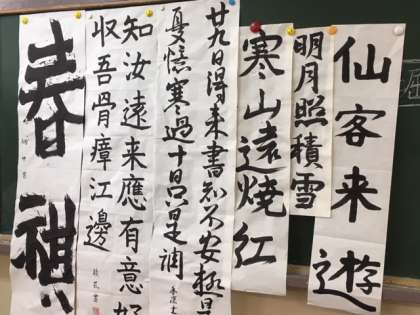 仙客来遊
明月照積雪
寒山遠燒紅
廿九日得来書知不安極
憂憶寒過十日只是調
知汝遠来應有意好
収吾骨瘴江邊
春祺